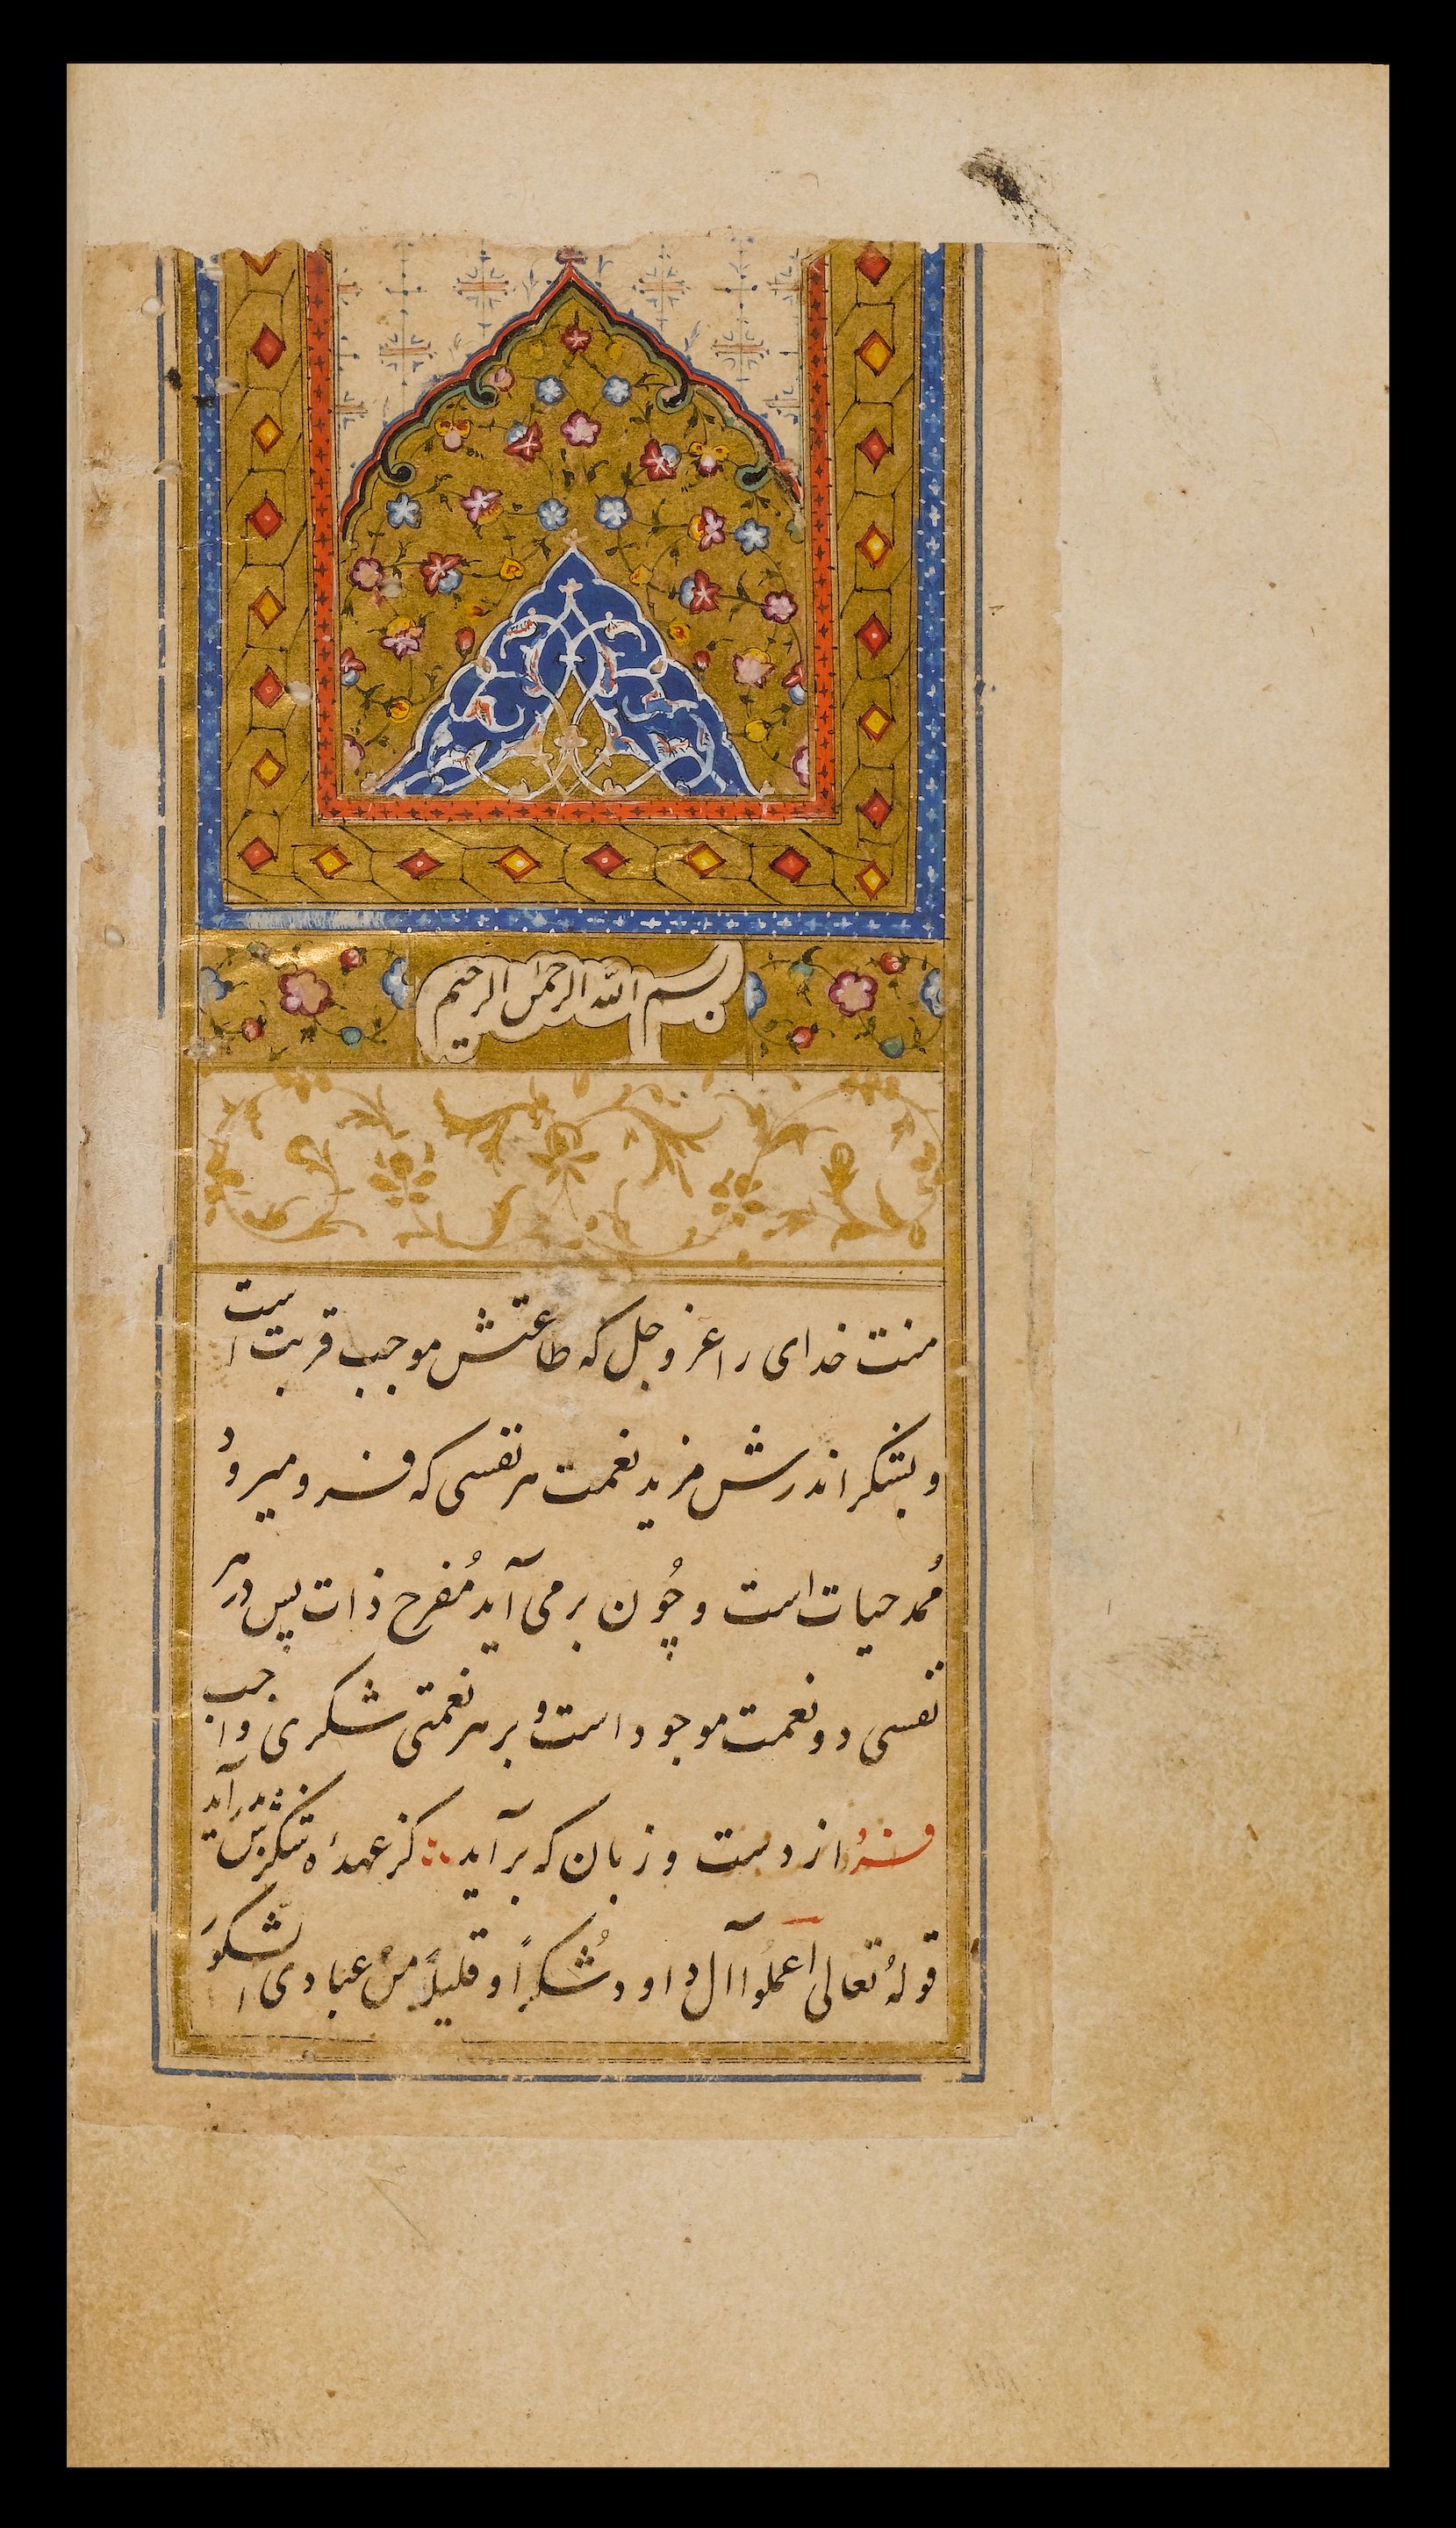 بسم الله الرحمن الرحیم
منت خدای را عز و جل که طاعتش موجب قربت است
و بشکر اندرش مزید نعمت هر نفسی که فرو میرود
مُمد حیات است و چُون بر می آید مُفرح ذات پس در هر
نفسی دو نعمت موجود است و بر هر نعمتی شکری واجب
فرد از دست و زبان که بر آید کز عهدهٔ شکرش بدر آید
قولهُ تعالی اعملُوا آل داود شُکراً و قلیلاً من عبادی الشکورَ